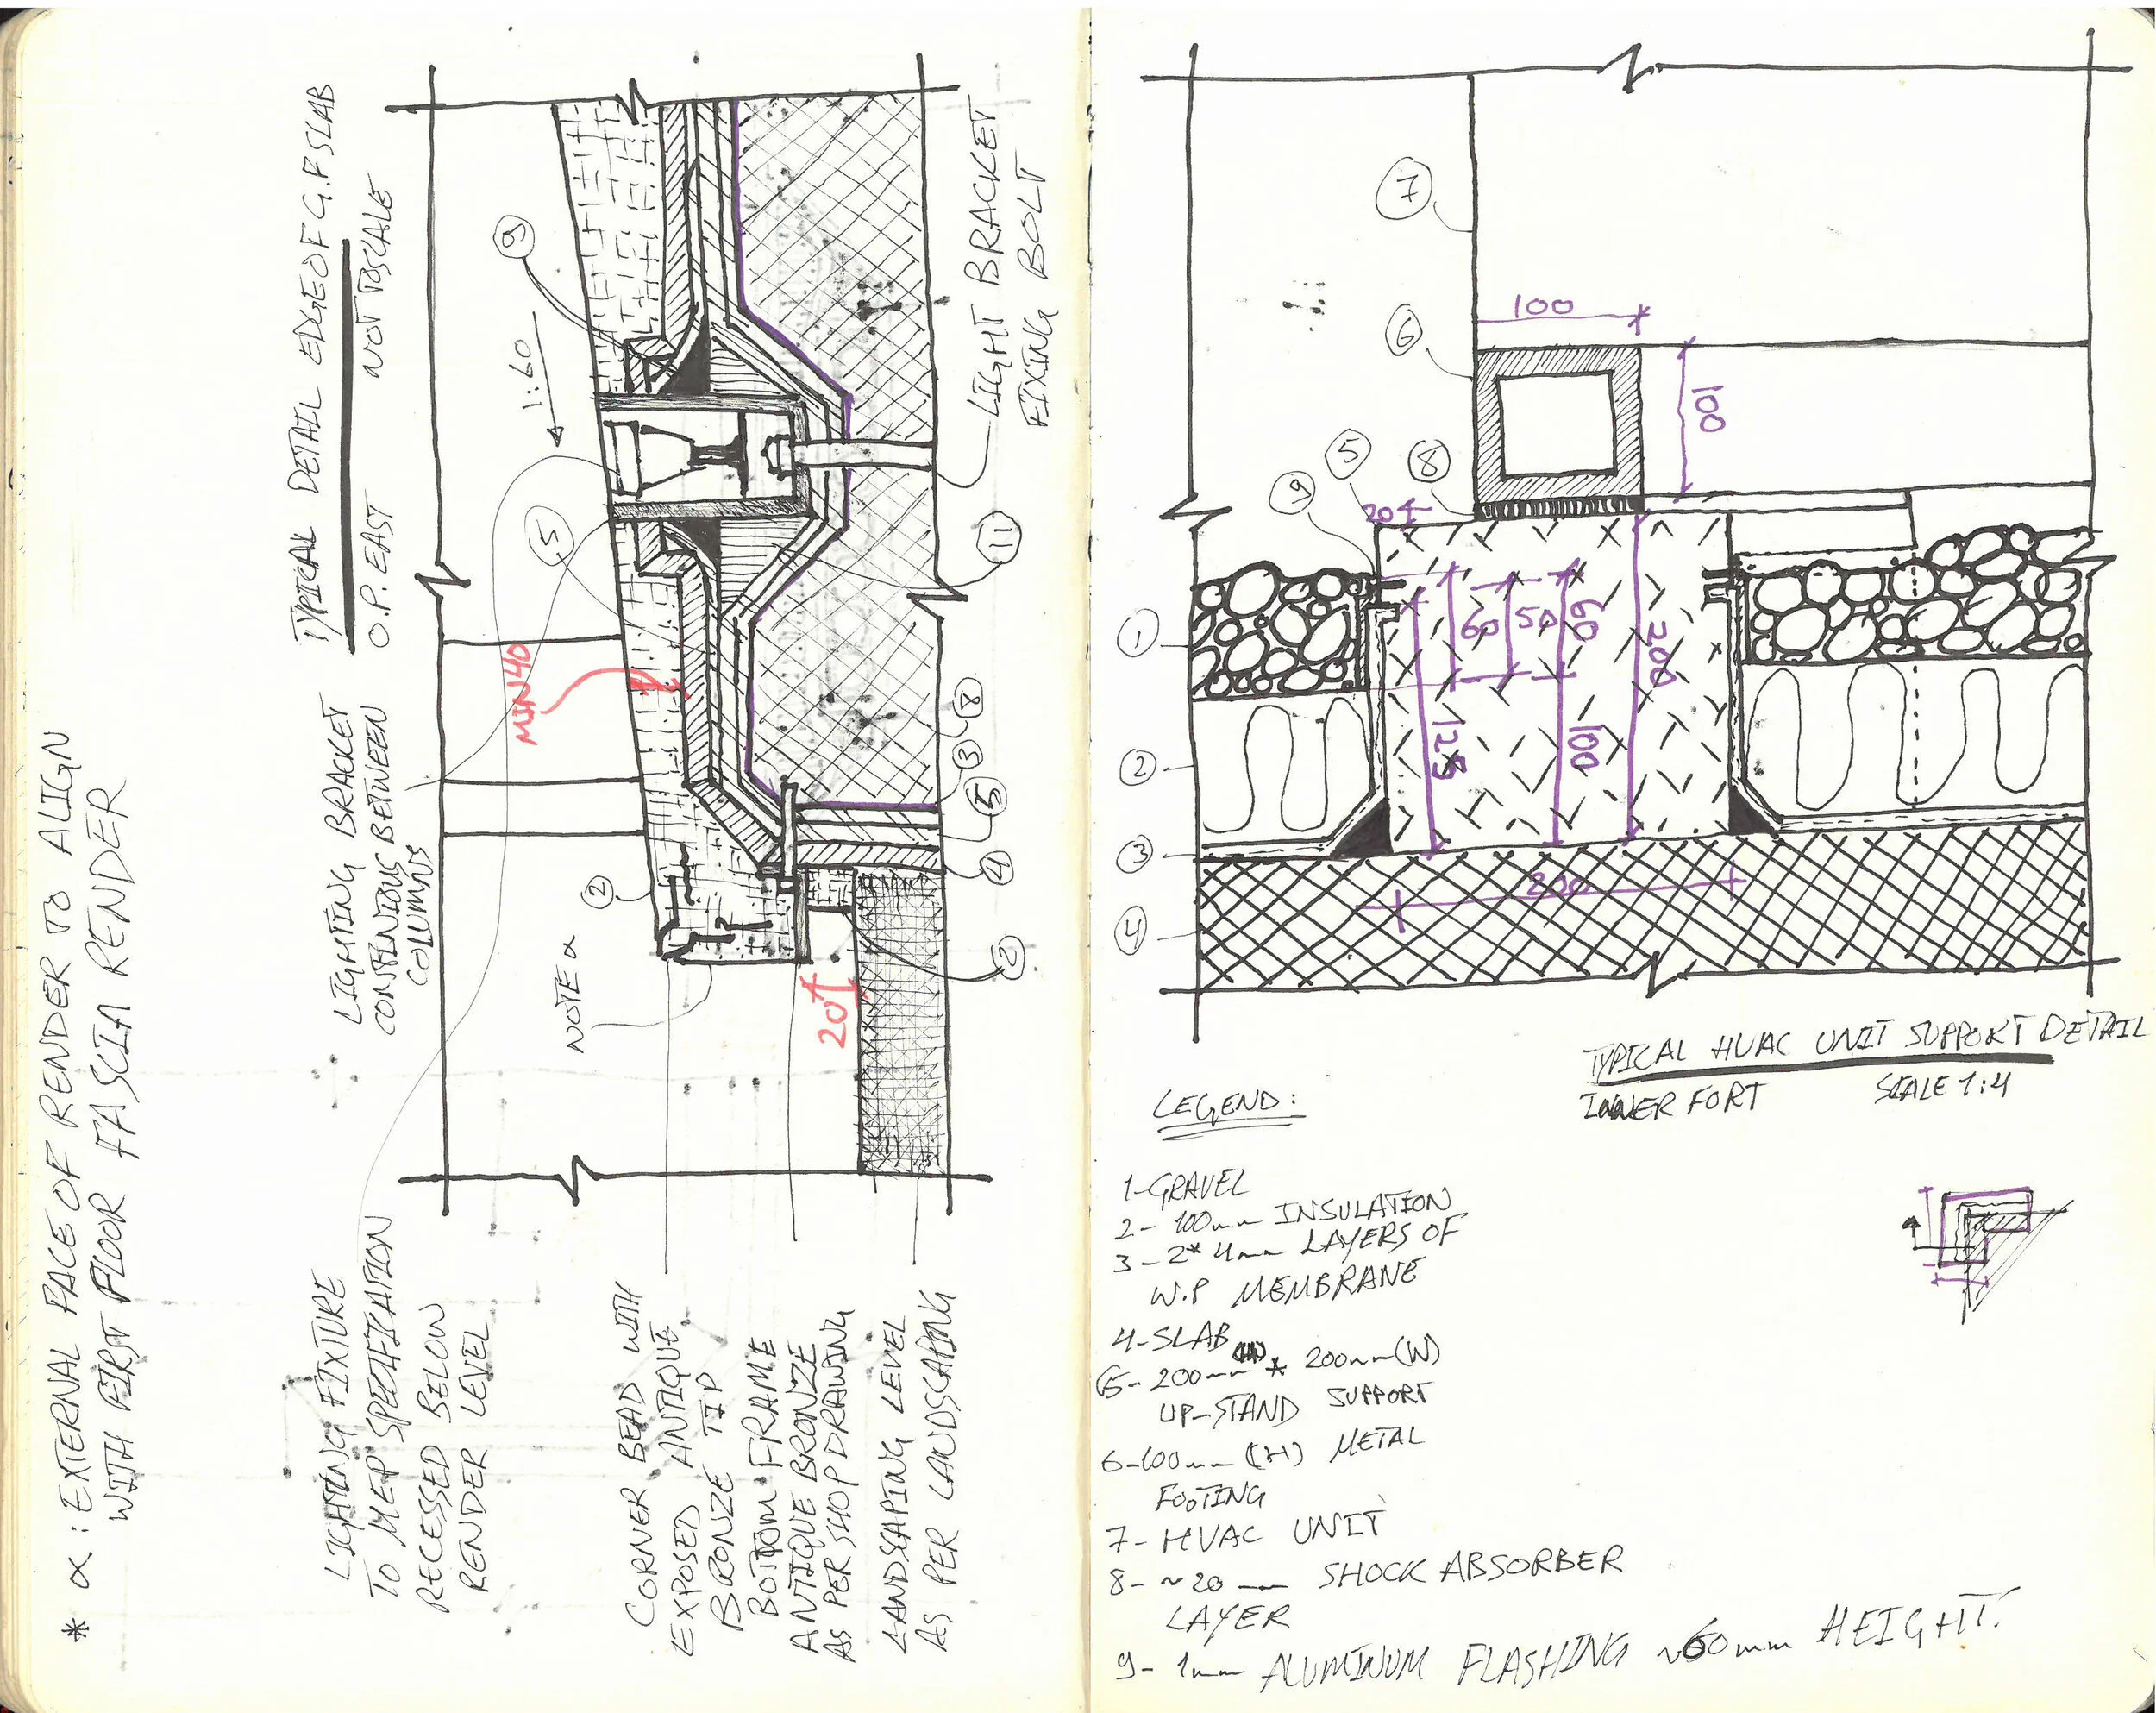 * α : EXTERNAL FACE OF RENDER TO ALIGN
WITH FIRST FLOOR FASCIA RENDER
TYPICAL DETAIL EDGE OF G.F. SLAB
O.P. EAST NOT TO SCALE
LIGHTING BRACKET
CONTINIOUS BETWEEN
COLUMNS
LIGHTING FIXTURE
TO MEP SPECIFICATION
RECESSED BELOW
RENDER LEVEL
9
1:60
5
MIN 40
2
NOTE α
20
LIGHT BRACKET
FIXING BOLT
11
8
3
5
4
2
CORNER BEAD WITH
EXPOSED ANTIQUE
BRONZE TIP
BOTTOM FRAME
ANTIQUE BRONZE
AS PER SHOP DRAWING
LANDSCAPING LEVEL
AS PER LANDSCAPING
7
100
6
100
5
8
9
20
1
60
50
60
200
125
100
2
3
200
4
TYPICAL HVAC UNIT SUPPORT DETAIL
INNER FORT SCALE 1:4
LEGEND:
1-GRAVEL
2- 100mm INSULATION
3- 2* 4mm LAYERS OF
W.P MEMBRANE
4-SLAB
5- 200mm (H) * 200mm (W)
UP-STAND SUPPORT
6-100mm (H) METAL
FOOTING
7- HVAC UNIT
8- ~20mm SHOCK ABSORBER
LAYER
9- 1mm ALUMINUM FLASHING ~60mm HEIGHT.